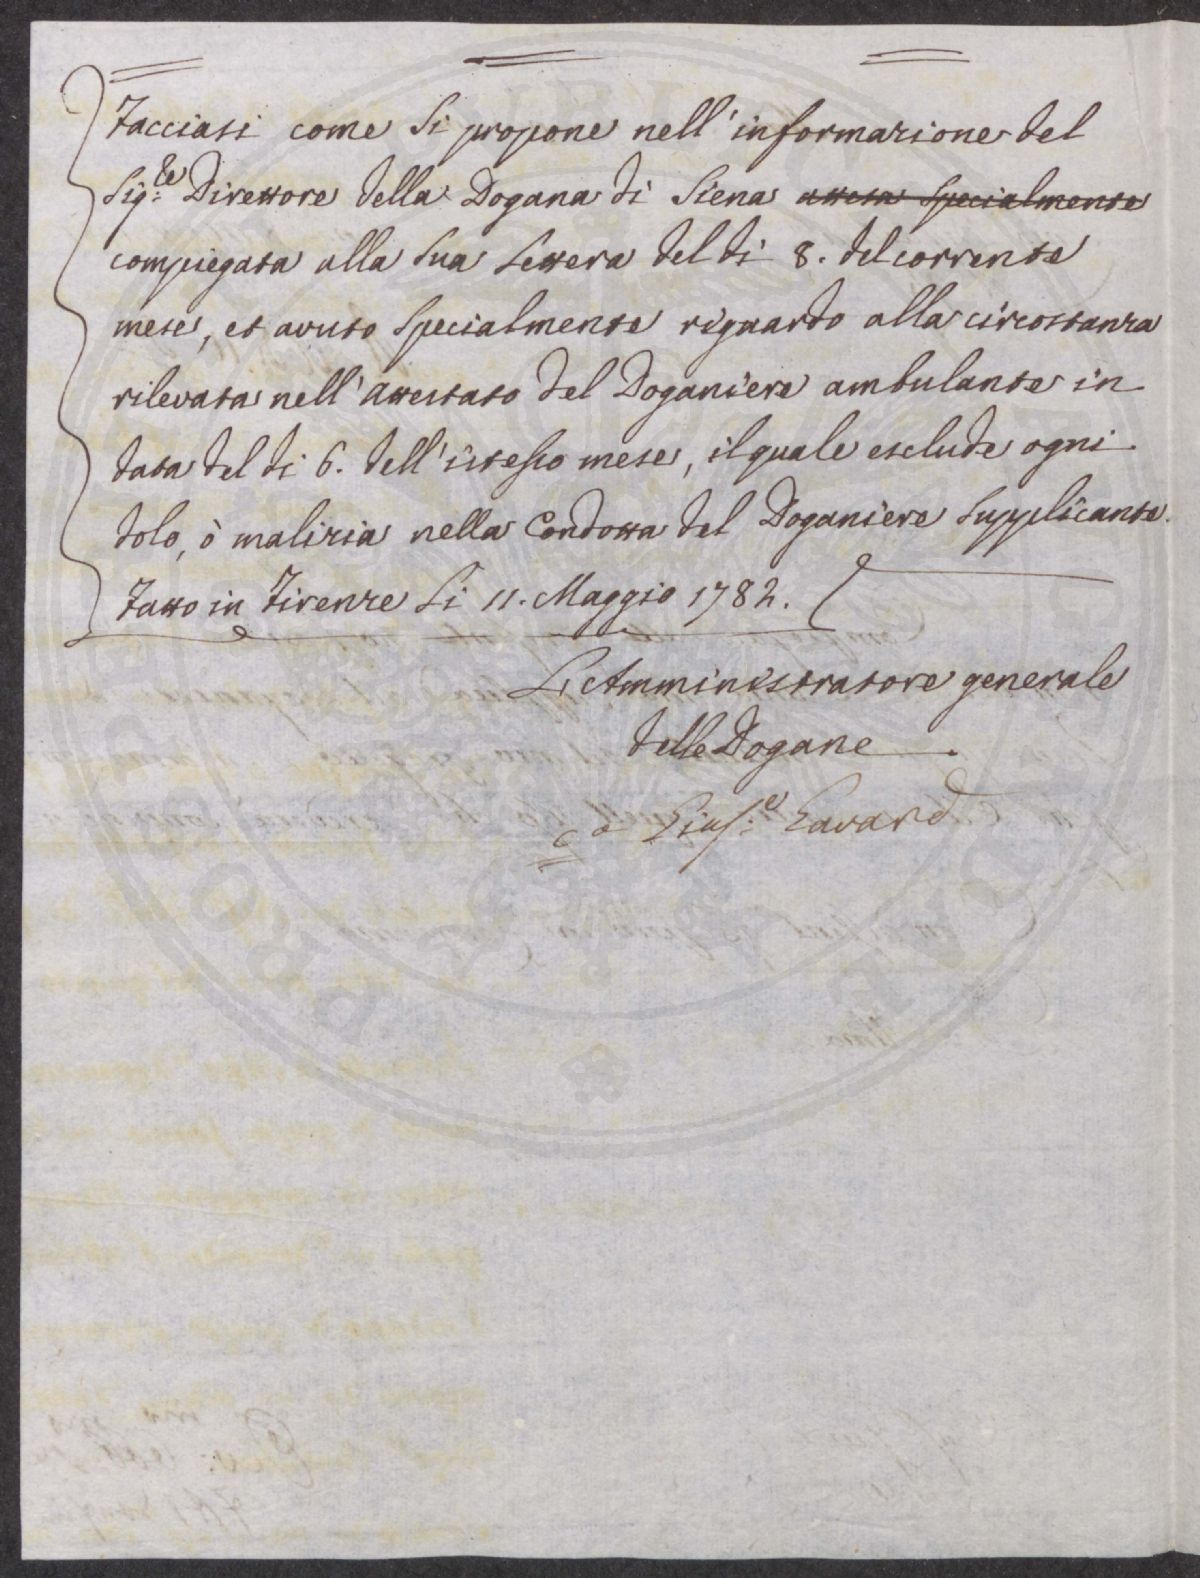 Facciasi come si propone nell'informazione del
Sig.re Direttore della Dogana di Siena attesa specialmente
compiegata alla sua Lettera del di 8. del corrente
mese, et avuto specialmente riguardo alla circostanza
rilevata nell'Attestato del Doganiere ambulante in
data del di 6. dell'istesso mese, il quale esclude ogni
dolo, ò malizia nella Condotta del Doganiere supplicante.
Fatto in Firenze Li 11. Maggio 1782.
L'Amministratore generale
delle Dogane
Gius.e Gavard